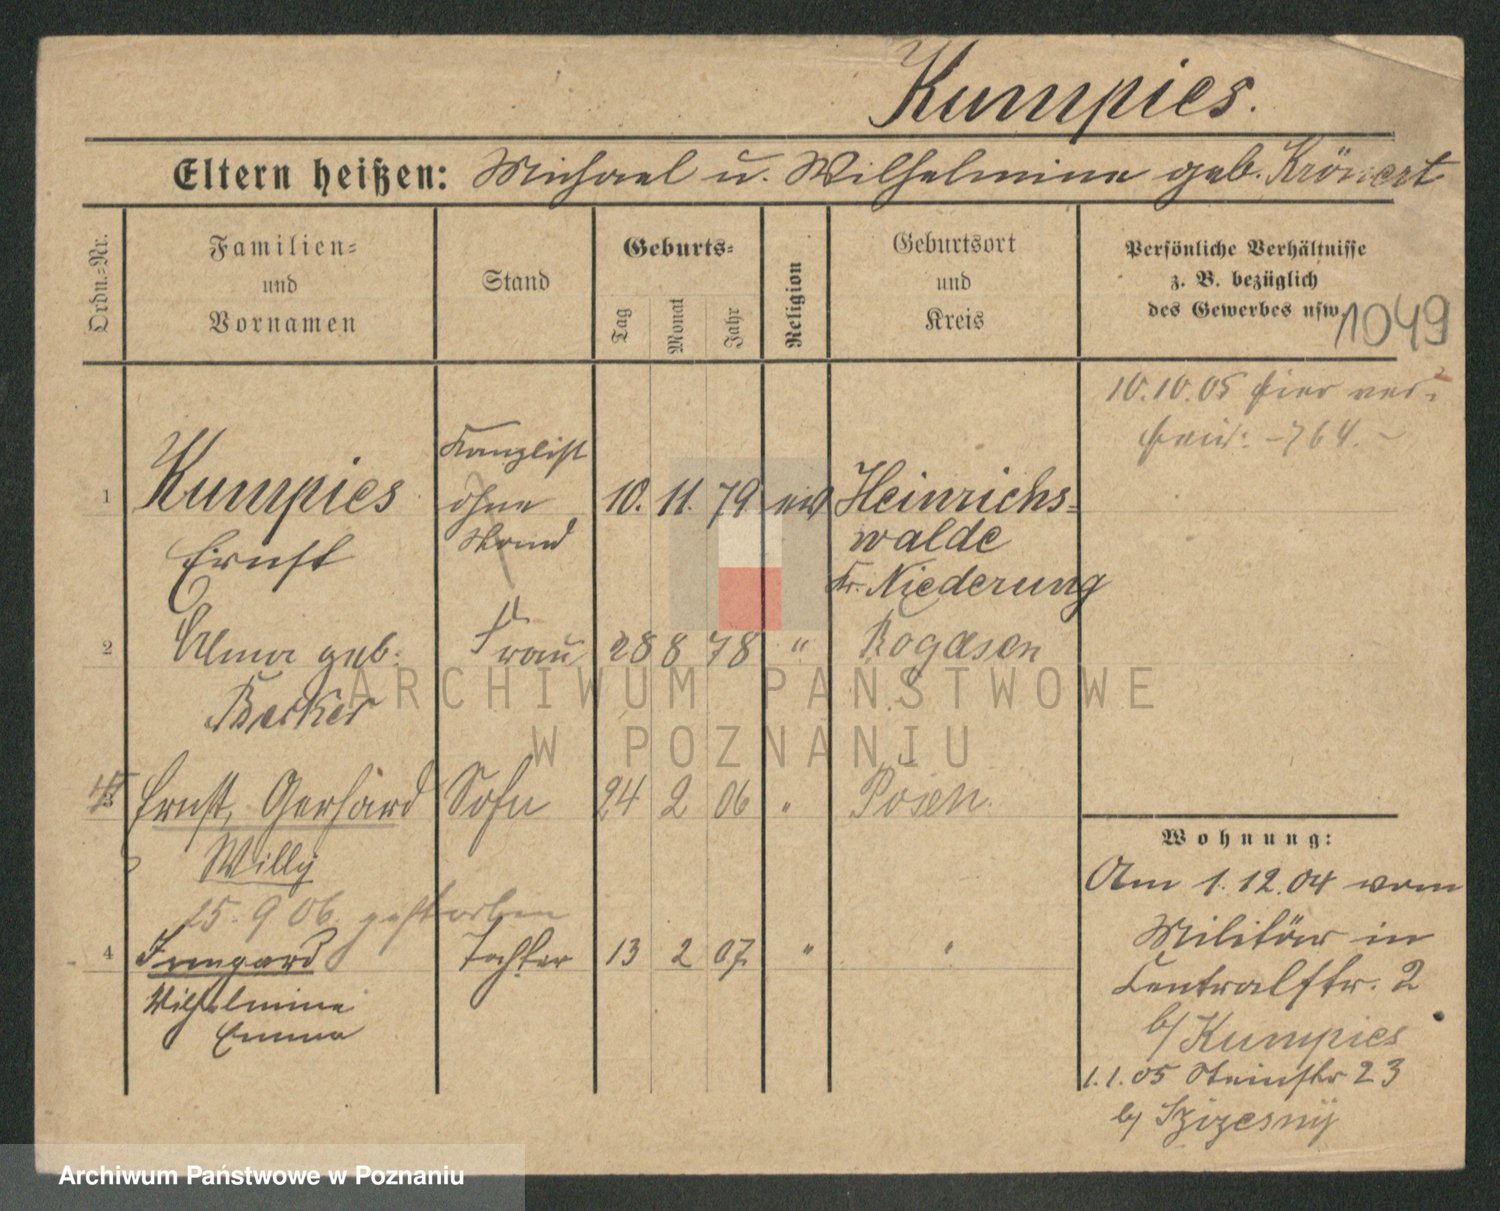 Kumpies.
Eltern heißen: Michael u. Wilhelmine geb. Krönert
Ordn.-Nr.
Familien-
und
Vornamen
Stand
Geburts-
Tag
Monat
Jahr
Religion
Geburtsort
und
Kreis
Persönliche Verhältnisse
z. B. bezüglich
des Gewerbes usw.
1049
10.10.05 hier ver-
heir. -764.-
Kanzlist
1 Kumpies ohne 10. 11. 79 ev Heinrichs-
Ernst Stand walde
Kr. Niederung
2 Alma geb. Frau 28 8 78 " Rogasen
Becker
3 Ernst, Gerhard Sohn 24 2 06 " Posen.
Willy
25. 9 06. gestorben
4 Irmgard Tochter 13 2 07. " "
Wilhelmine
Emma
Wohnung:
Am 1.12.04 vom
Militär in
Centralstr. 2
b/ Kumpies
1.1.05 Steinstr 23
b/ Szizesny
ARCHIWUM PAŃSTWOWE
W POZNANIU
Archiwum Państwowe w Poznaniu